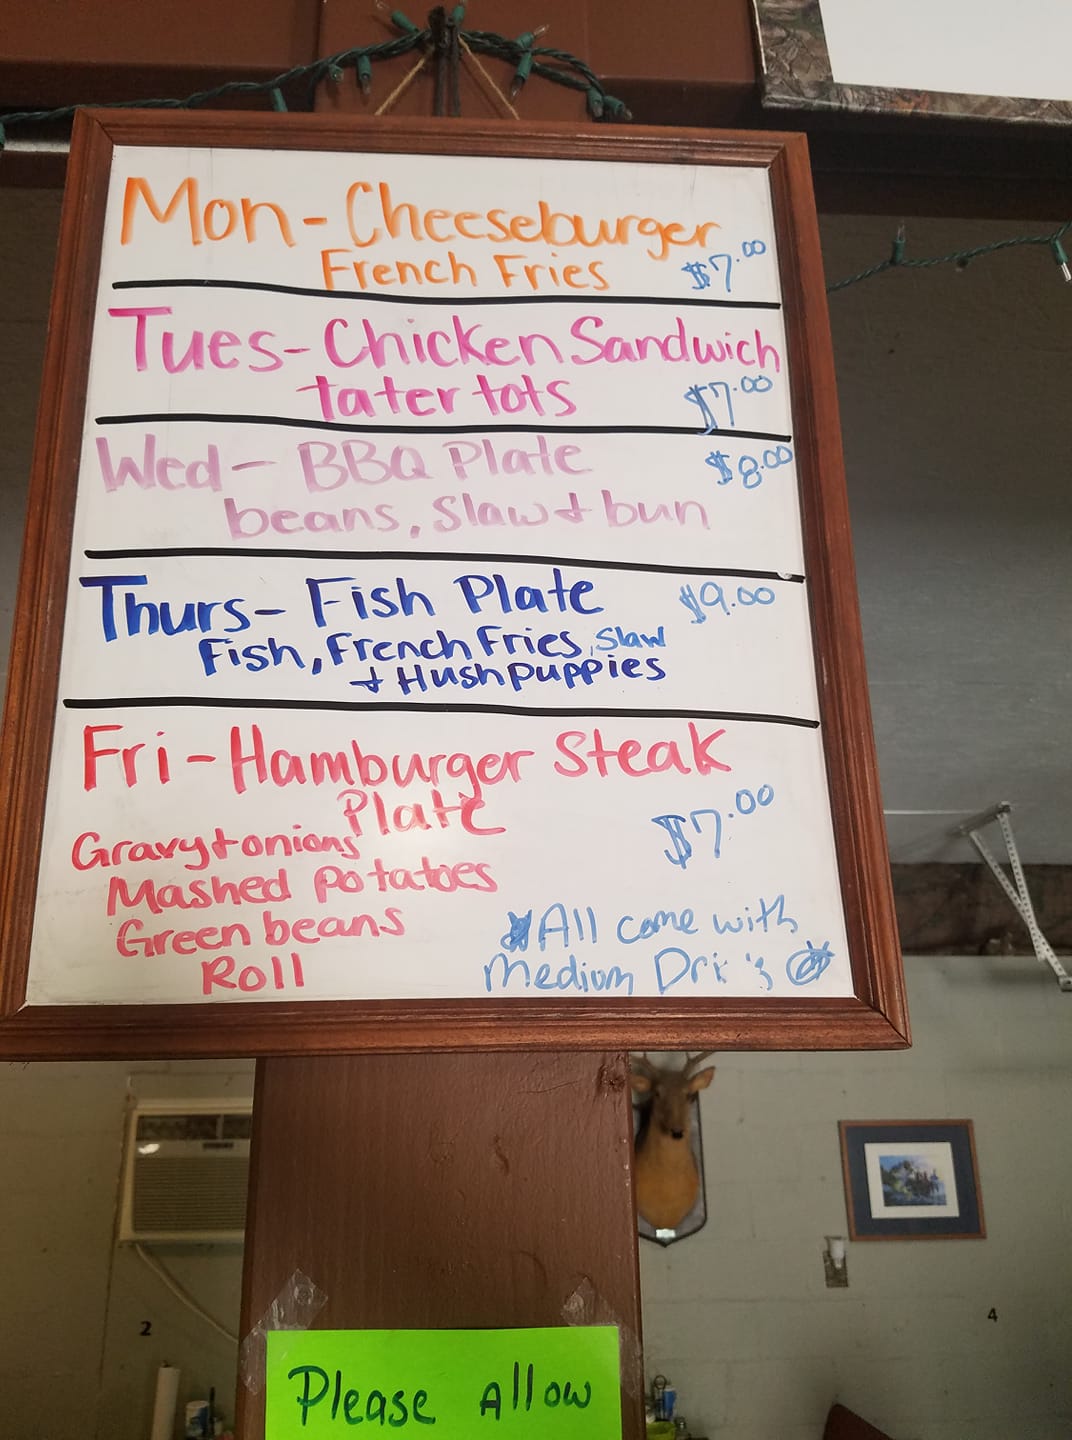 Mon - Cheeseburger
French Fries $7.00
Tues - Chicken Sandwich
tater tots $7.00
Wed - BBQ Plate $8.00
beans, Slaw + bun
Thurs - Fish Plate $9.00
Fish, French Fries, Slaw
+ Hushpuppies
Fri - Hamburger Steak
Plate $7.00
Gravy + onions
Mashed potatoes
Green beans
Roll
All come with
Medium
2
4
Please Allow